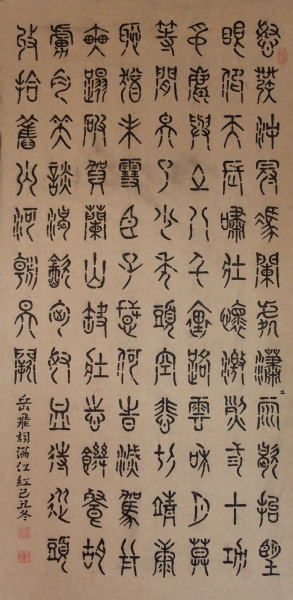 怒髮沖冠馮闌處瀟〻雨歇抬望
眼仰天長嘯壯懷激烈三十功
名塵與土八千里路雲和月莫
等閒白了少年頭空悲切靖康
恥猶未雪臣子恨何時滅駕長
車踏破賀蘭山缺壯志飢餐胡
虜肉笑談渴飲匈奴血待從頭
收拾舊山河朝天闕
岳飛詞滿江紅己丑冬